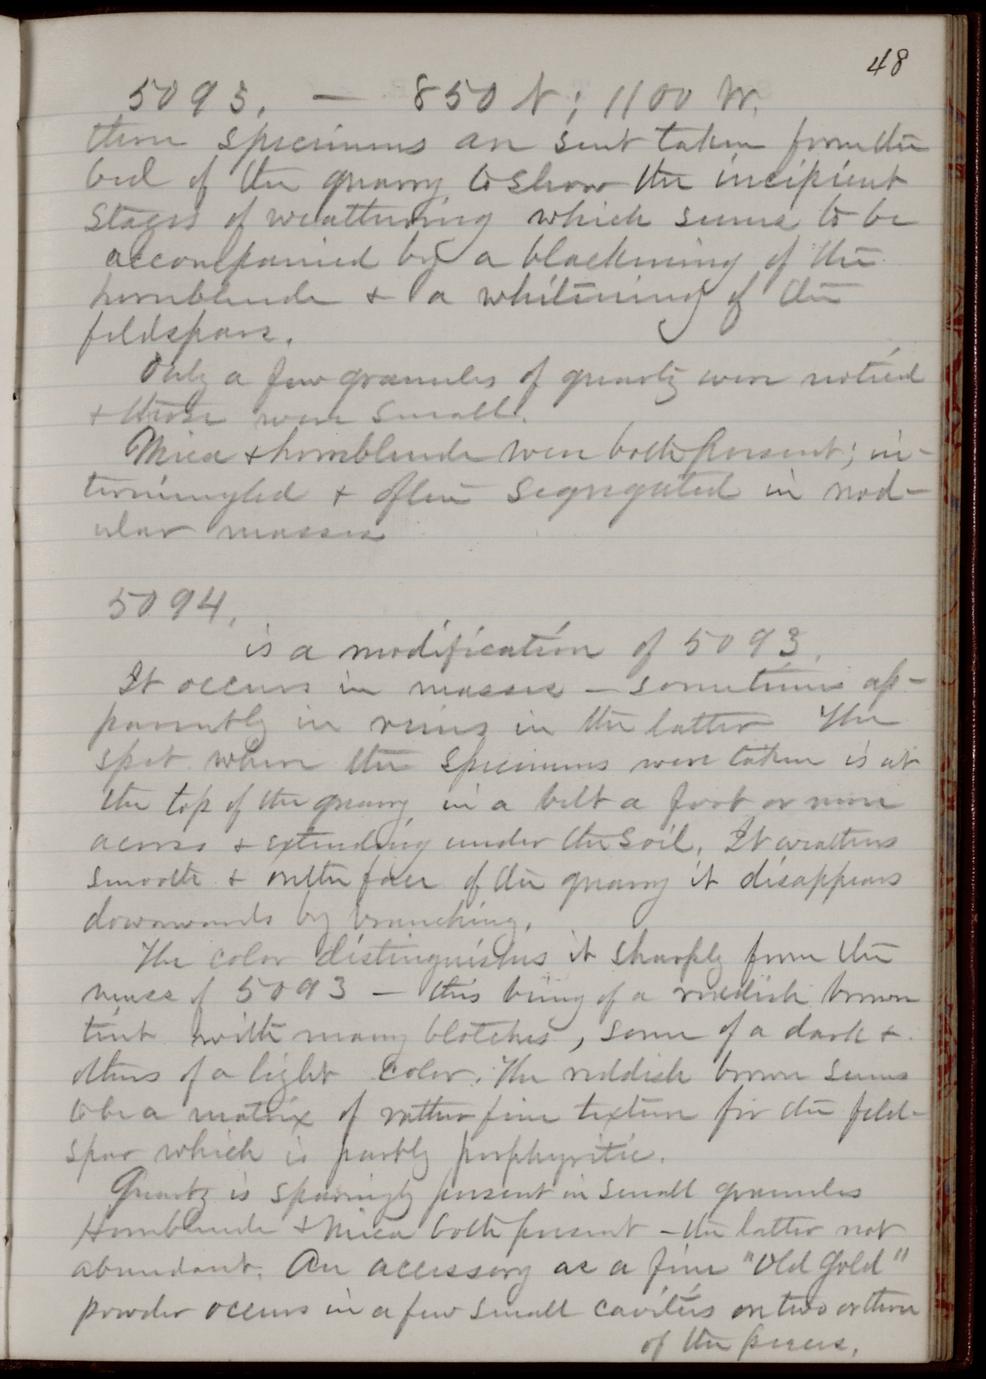 48
5093. — 850 N; 1100 W.
three specimens are sent taken from the
bed of the quarry to show the incipient
stages of weathering which seems to be
accompanied by a blackening of the
hornblende + a whitening of the
feldspars.
Only a few granules of quartz were noticed
+ those were small.
Mica + hornblende were both present; in-
termingled + often segregated in nod-
ular masses
5094.
is a modification of 5093.
It occurs in masses — sometimes ap-
parently in veins in the latter The
spot where the specimens were taken is at
the top of the quarry in a belt a foot or more
across + extending under the soil. It weathers
smooth + on the face of the quarry it disappears
downwards by branching.
The color distinguishes it sharply from the
mass of 5093 — this being of a reddish brown
tint with many blotches, some of a dark +
others of a light color. The reddish brown seems
to be a matrix of rather fine texture for the feld-
spar which is partly porphyritic.
Quartz is sparingly present in small granules
Hornblende + mica both present — the latter not
abundant. An accessory as a fine "Old Gold"
powder occurs in a few small cavities on two or three
of the pieces.